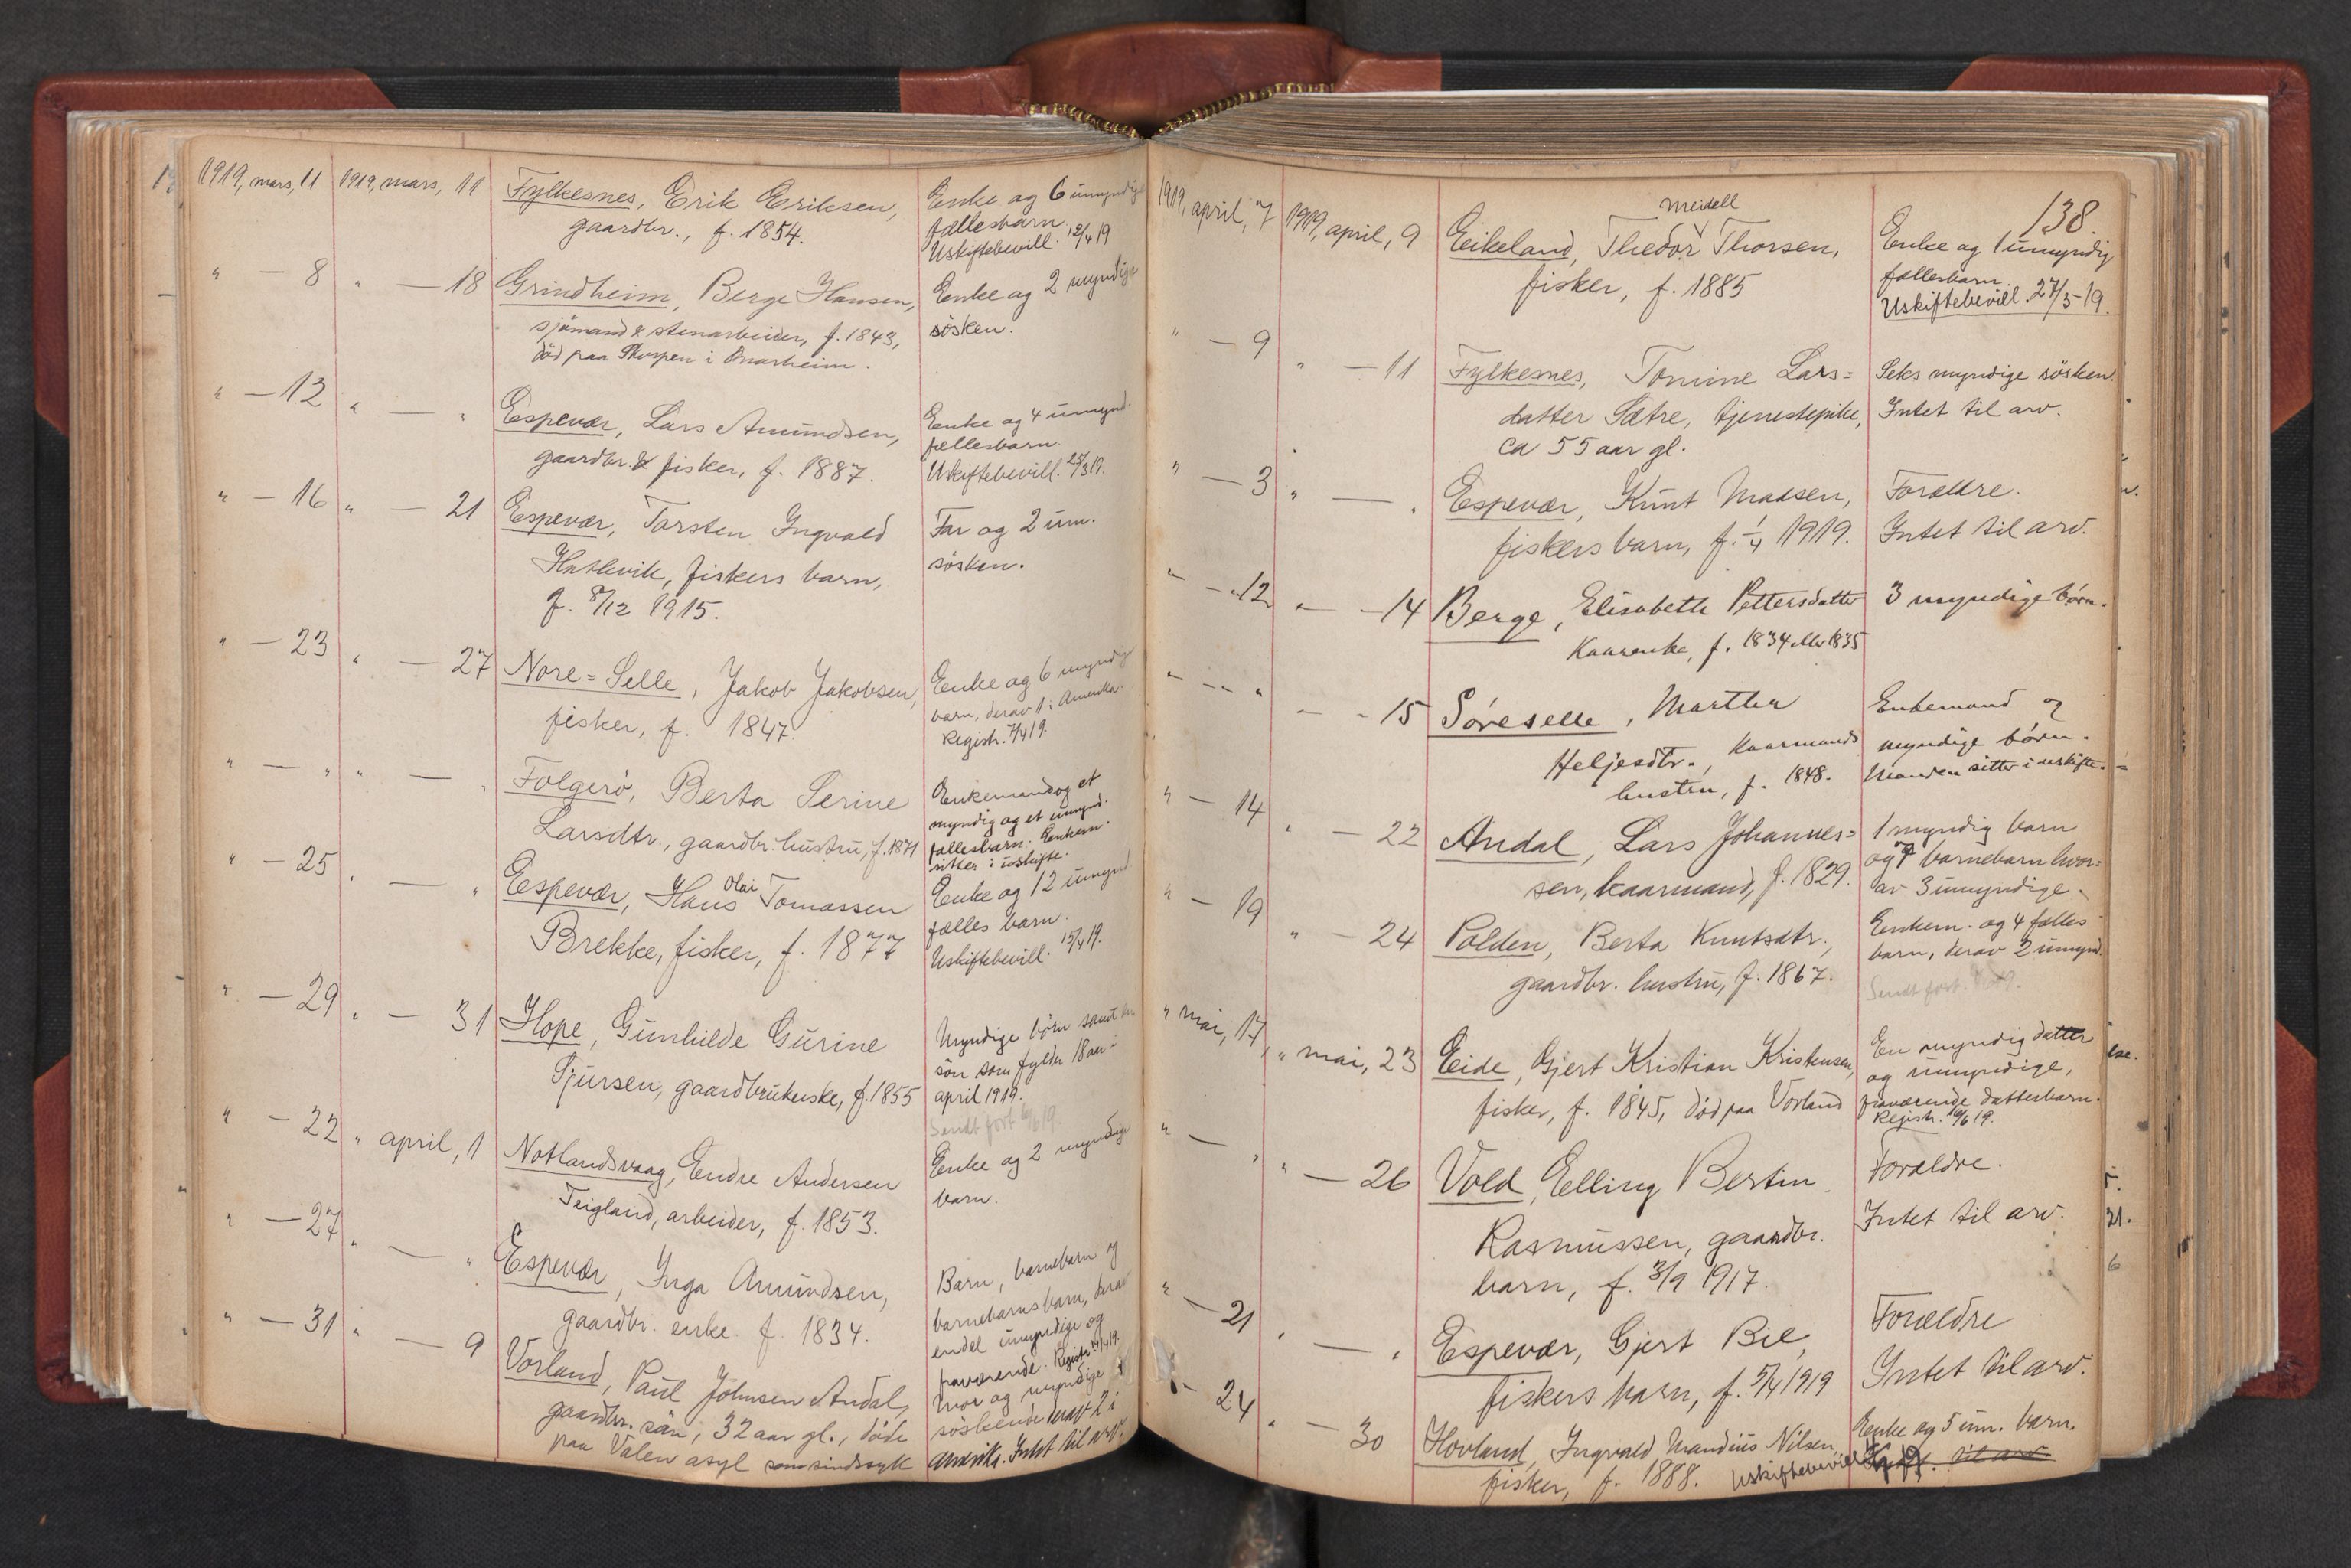 1919, mars, 11 1919, mars, 11 Fylkesnes, Erik Eriksen, Enke og 6 umyndige
gaardbr., f. 1854. fællesbarn
Uskiftebevill. 12/4 19
" — 8 " — 18 Grindheim, Berge Hansen, Enke og 2 myndige
sjømand & stenarbeider, f. 1843, søsken.
død paa i Onarheim.
" — 12 " — " Espevær, Lars Amundsen, Enke og 4 umynd.
gaardbr. & fisker, f. 1887. fællesbarn.
Uskiftebevill. 25/3 19.
" — 16 " — 21 Espevær, Torsten Ingvald Far og 2 um.
Hatlevik, fiskers barn, søsken.
f. 8/12 1915.
" — 23 " — 27 Nore=Selle, Jakob Jakobsen, Enke og 6 myndig
fisker, f. 1847. barn, derav 1 i Amerika.
Registr. 7/4 19.
" — " " — " Folgerø, Berta Serine Enkemand og et
Larsdtr., gaardbr. hustru, f. 1871 myndig og et umynd.
fællesbarn. Enkem.
sitter i uskifte.
" — 25 " — " Espevær, Hans Olai Tomassen Enke og 12 umynd
Brekke, fisker, f. 1877 fælles barn.
Uskiftebevill. 15/4 19.
" — 29 " — 31 Hope, Gunhilde Gurine Myndige børn samt en
Sjursen, gaardbrukerske, f. 1855 søn som fylder 18 aar i
april 1919.
Sendt fort 19.
" — 22 " april, 1 Notlandsvaag, Endre Andersen Enke og 2 myndige
Teigland, arbeider, f. 1853. barn.
" — 27 " — " Espevær, Inga Amundsen, Barn, barnebarn og
gaardbr. enke. f. 1834. barnebarnsbarn, derav
endel umyndige og
fraværende. Registr. 19.
" — 31 " — 9 Vorland, Paul Johnsen Andal, Mor og myndige
gaardbr. søn, 32 aar gl., døde søskende derav 2 i
paa Valen asyl som sindssyk Amerika. Intet til arv.
138.
1919, april, 7 1919, april, 9 Eikeland, Thedor Meidell Thorsen, Enke og 1 umyndig
fisker, f. 1885 fællesbarn.
Uskiftebevill. 27/5-19.
" — 9 " — 11 Fylkesnes, Tomine Lars= Seks myndige søsken.
datter Sætre, tjenestepike, Intet til arv.
ca 55 aar gl.
" — 3 " — " Espevær, Knut Madsen, Forældre.
fiskers barn, f. 1/4 1919. Intet til arv.
" — 12 " — 14 Berge, Elisabeth Pettersdatter 3 myndige børn.
Kaarenke, f. 1834 eller 1835
" — " " — 15 Søreselle, Martha Enkemand og
Heljesdtr., Kaarmands myndige børn.
hustru, f. 1848. Manden sitter i uskifte.
" — 14 " — 22 Andal, Lars Johannes= 1 myndig barn
sen, kaarmand, f. 1829. og 7 barnebarn hvor=
av 3 umyndige.
" — 19 " — 24 Polden, Berta Knutsdtr., Enkem. og 4 fælles
gaardbr. hustru, f. 1867. barn, derav 2 umynd.
Sendt fort. 19.
" mai, 17 " mai, 23 Eide, Gjert Kristian Kristensen, En myndig datter
fisker, f. 1845, død paa Vorland og umyndige,
fraværende datterbarn.
Registr. 19.
" — " " — 26 Vold, Elling Bertin Forældre.
Rasmussen, gaardbr. Intet til arv.
barn, f. 3/9 1917.
" — 21 " — " Espevær, Gjert Bie, Forældre
fiskers barn, f. 5/4 1919 Intet til arv.
" — 24 " — 30 Hovland, Ingvald Mandius Nilsen, Enke og 5 um. barn.
fisker, f. 1888. Uskiftebevill. 19. til arv.